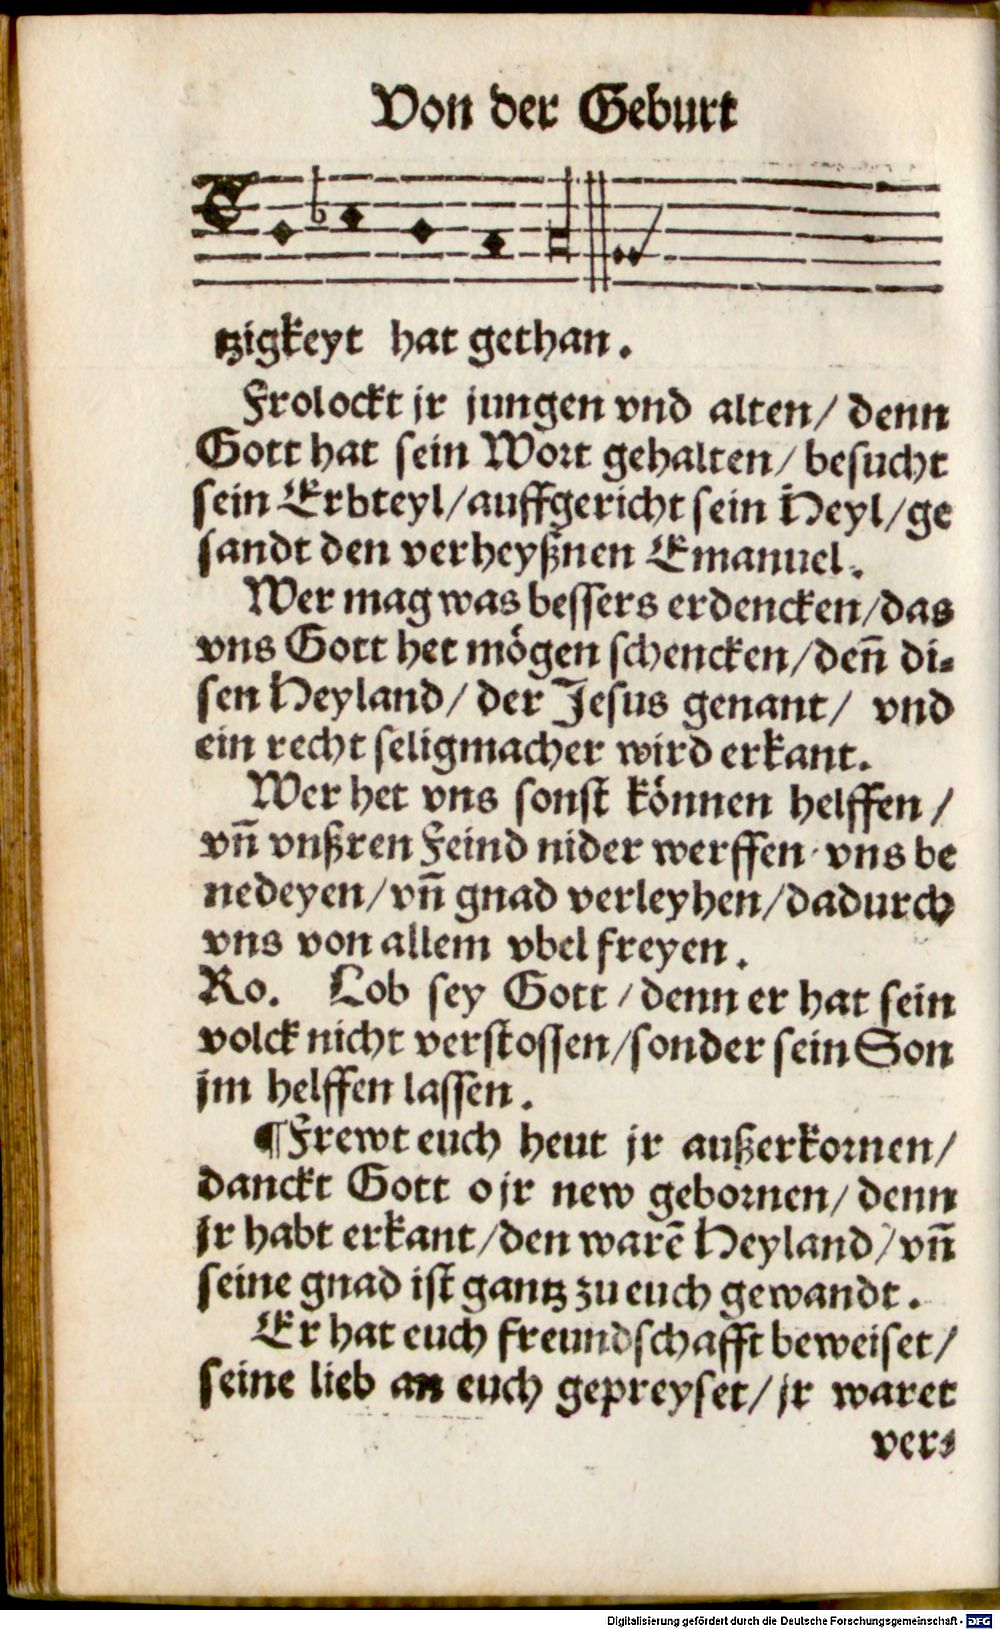 Von der Geburt
tzigkeyt hat gethan.
Frolockt jr jungen vnd alten/ denn
Gott hat sein Wort gehalten/ besucht
sein Erbteyl/auffgericht sein Heyl/ge
sandt den verheyßnen Emanuel.
Wer mag was bessers erdencken/das
vns Gott het mögen schencken/deñ di-
sen Heyland/ der Jesus genant/ vnd
ein recht seligmacher wird erkant.
Wer het vns sonst können helffen/
vñ vnßren Feind nider werffen· vns be
nedeyen/vñ gnad verleyhen/dadurch
vns von allem vbel freyen.
Ro. Lob sey Gott/denn er hat sein
volck nicht verstossen/sonder sein Son
jm helffen lassen.
¶Frewt euch heut jr außerkornen/
danckt Gott o jr new gebornen/ denn
jr habt erkant/den warē Heyland/vñ
seine gnad ist gantz zu euch gewandt.
Er hat euch freundschafft beweiset/
seine lieb an euch gepreyset/ jr waret
ver-
Digitalisierung gefördert durch die Deutsche Forschungsgemeinschaft - DFG